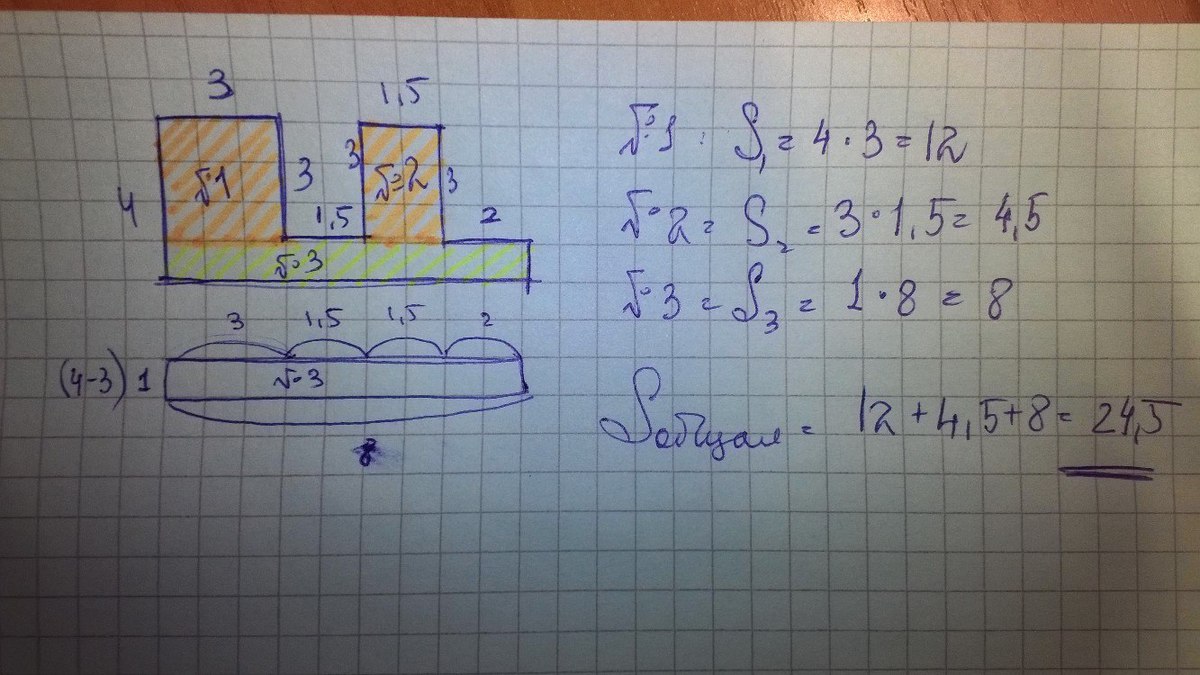 3 1,5
№1 3 3 №2 3
4 1,5 2
№3
3 1,5 1,5 2
(4-3) 1 №3
8
№1: S₁ = 4·3 = 12
№2 = S₂ = 3·1,5 = 4,5
№3 = S₃ = 1·8 = 8
Sобщая = 12+4,5+8 = 24,5